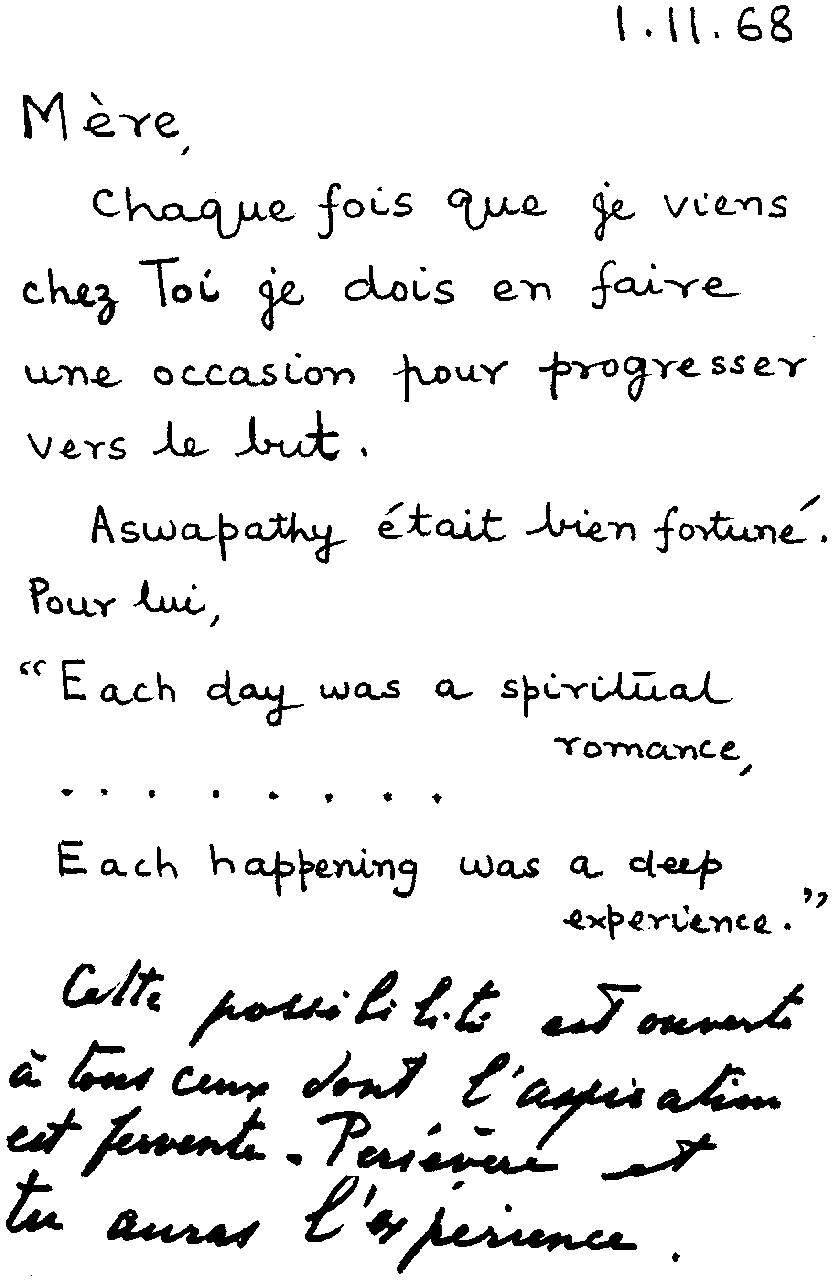 1.11.68
Mère,
Chaque fois que je viens
chez Toi je dois en faire
une occasion pour progresser
vers le but.
Aswapathy était bien fortuné.
Pour lui,
“Each day was a spiritual
romance,
. . . . . . . .
Each happening was a deep
experience.”
Cette possibilité est ouverte
à tous ceux dont l'aspiration
est fervente. Persévère et
tu auras l'expérience.